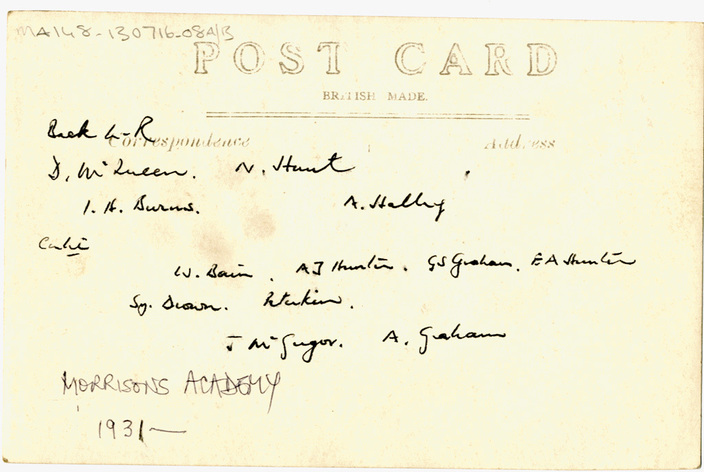 MA148-130716-08A/B
POST CARD
BRITISH MADE.
Back L-R
Correspondence Address
D. McQueen. N. Hunt
I. H. Burns. A. Halley
W. Bain. A J Hunter. G S Graham. E A Hunter
Brown. Peterkin.
J McGregor. A. Graham
MORRISONS ACADEMY
1931-